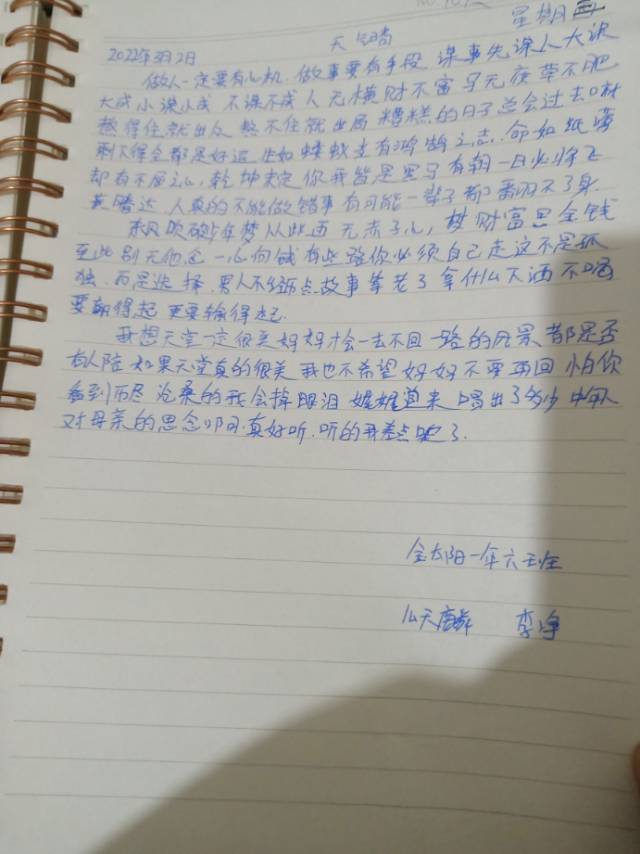 星期三
2022年3月2日 天气晴
做人一定要有心机.做事要有手段 谋事先谋人大谋
大成小谋小成 不谋不成 人无横财不富马无夜草不肥
熬得住就出众 熬不住就出局 糟糕的日子总会过去
剩下得全都是好运 比如蝼蚁立有鸿鹄之志.命如纸薄
却有不屈之心,乾坤未定 你我皆是黑马 有朝一日必将飞
黄腾达.人真的不能做错事有可能一辈子都翻不了身
东风吹破少年梦从此再无赤子心,梦财富思金钱
至此别无他念 一心向钱有些路你必须自己走这不是孤
独.而是选择.男人不经历点故事等老了拿什么下酒不喝
要朝得起更要输得起
我想天堂一定很美妈妈才会一去不回一路的风景都是否
有人陪 如果天堂真的很美 我也不希望妈妈不要再回 怕你
看到历尽沧桑的我会掉眼泪 娓娓道来 唱出了多少中年人
对母亲的思念 真好听.听的我差点 了.
金太阳一年六班
么天麟 李净